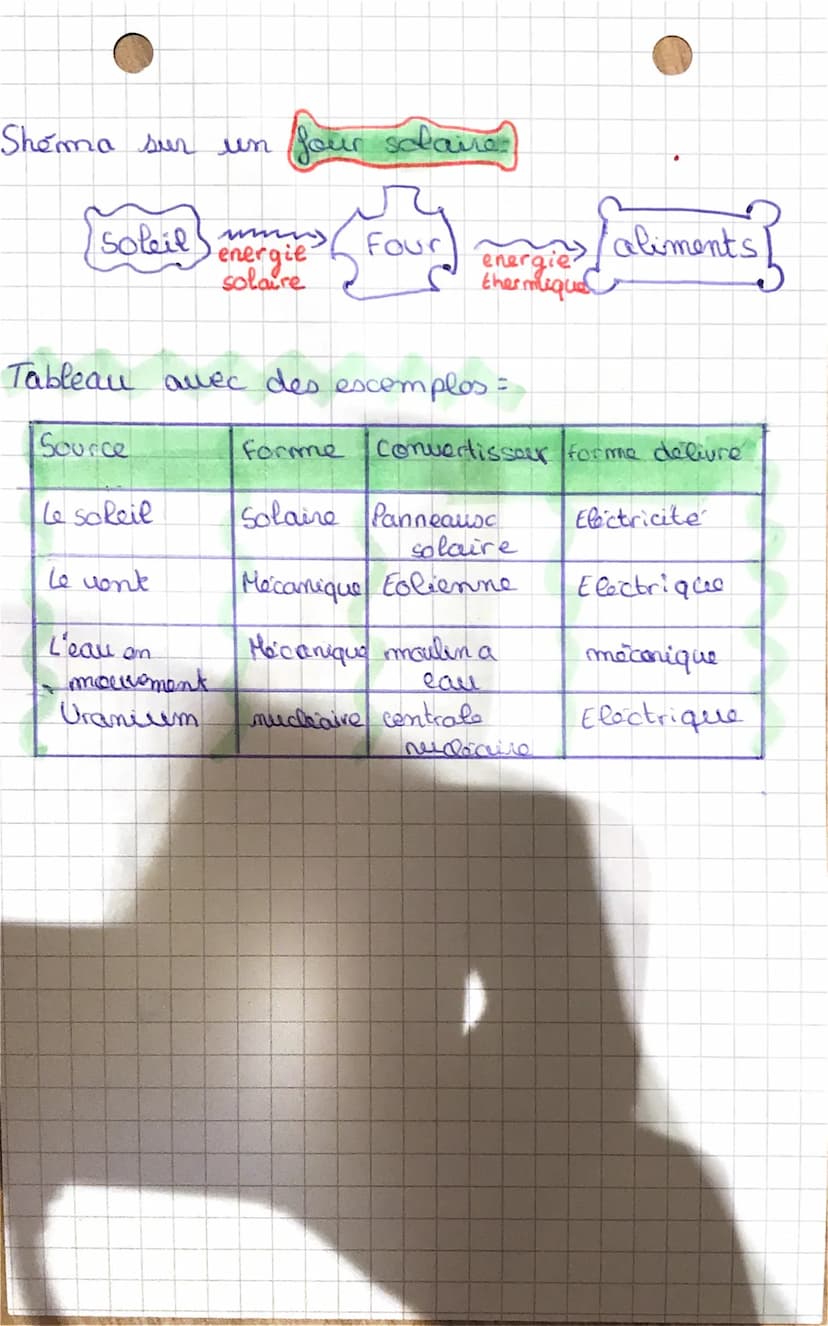 Shéma sur un four solaire:
Soleil energie solaire Four energie thermique aliments
Tableau avec des exemples =
Source Forme Convertisseur forme délivré
Le soleil Solaire Panneaux solaire Electricité
Le vent Mécanique Eolienne Electrique
L'eau en mouvement Mécanique moulin a eau mécanique
Uranium nucléaire centrale nucléaire Electrique